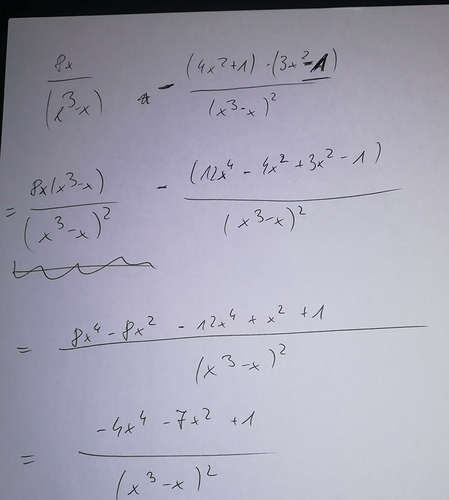 8x/(x³-x) - (4x²+1)·(3x²-1)/(x³-x)²
= 8x(x³-x)/(x³-x)² - (12x⁴ - 4x² + 3x² - 1)/(x³-x)²
= 8x⁴ - 8x² - 12x⁴ + x² + 1/(x³-x)²
= -4x⁴ - 7x² + 1/(x³-x)²